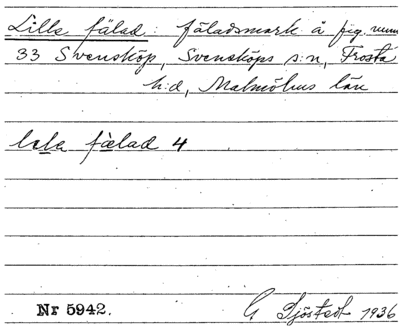 Lilla fälad: fäladsmark å fig. num
33 Svensköp, Svensköps s:n, Frosta
h:d, Malmöhus län
lɩla fälad 4
Nr 5942. G Sjöstedt 1936